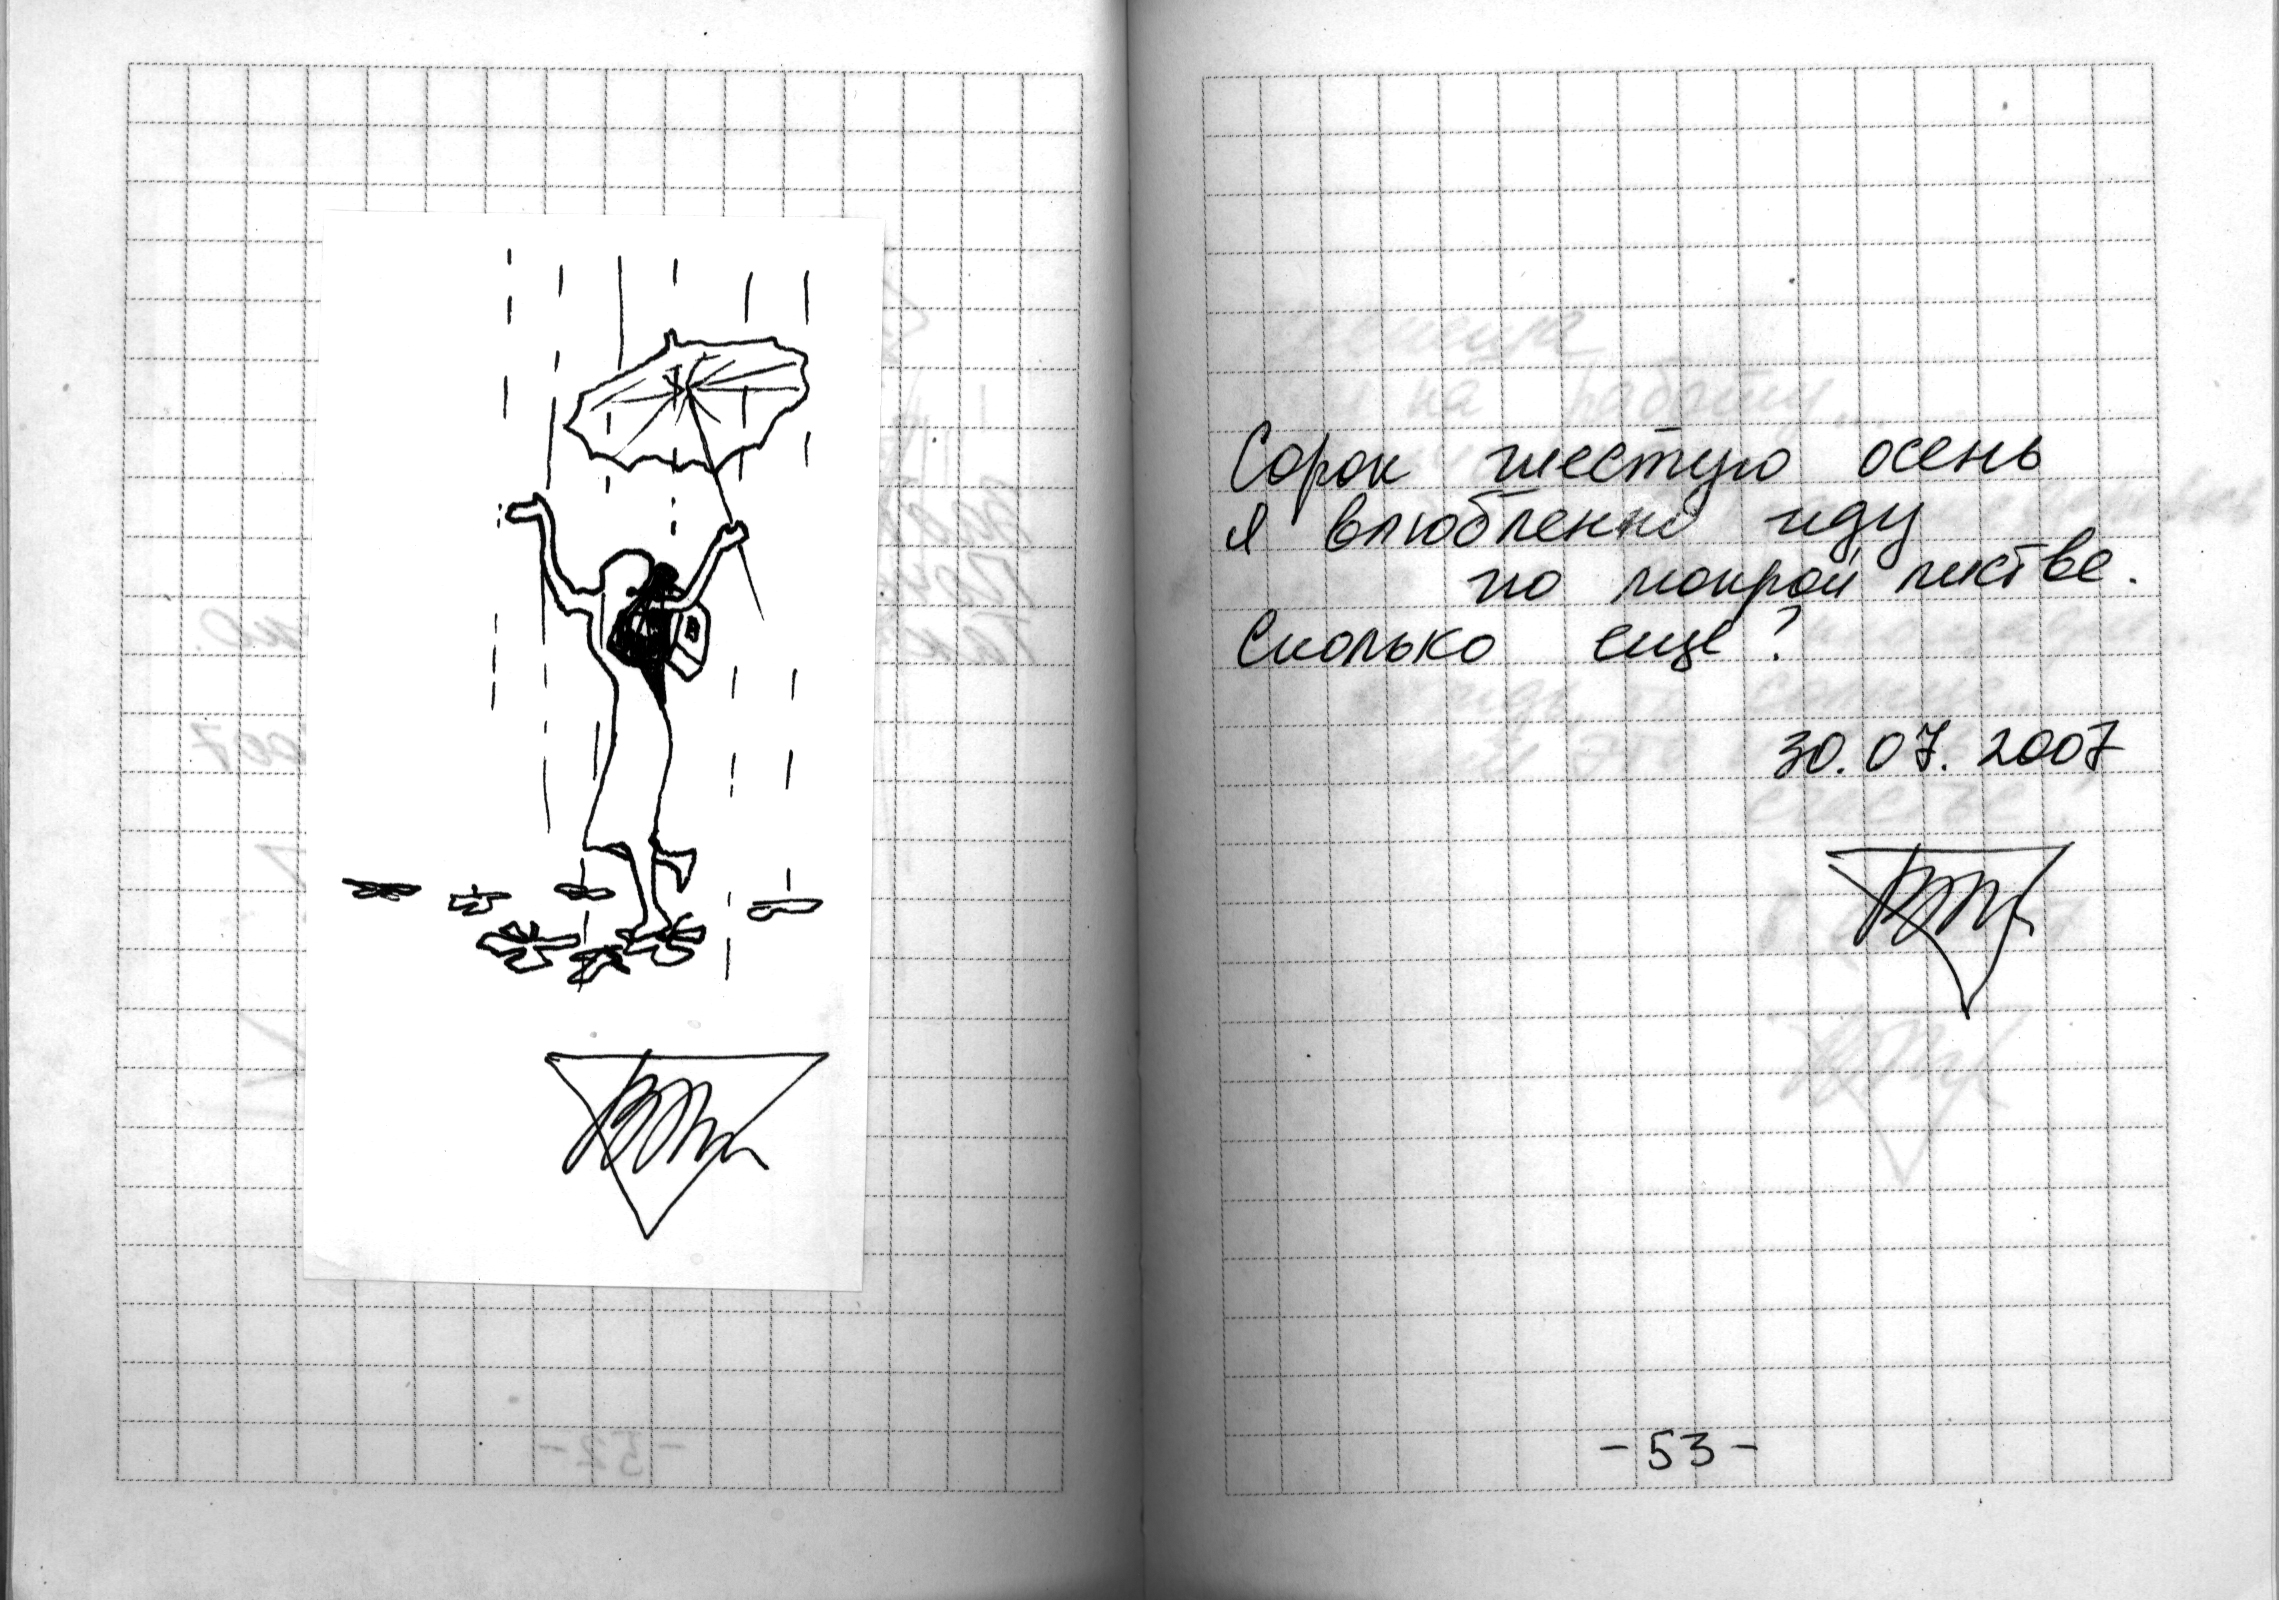 Сорок шестую осень
я влюбленно иду
по мокрой листве.
Сколько еще?
30.07.2007
-53-